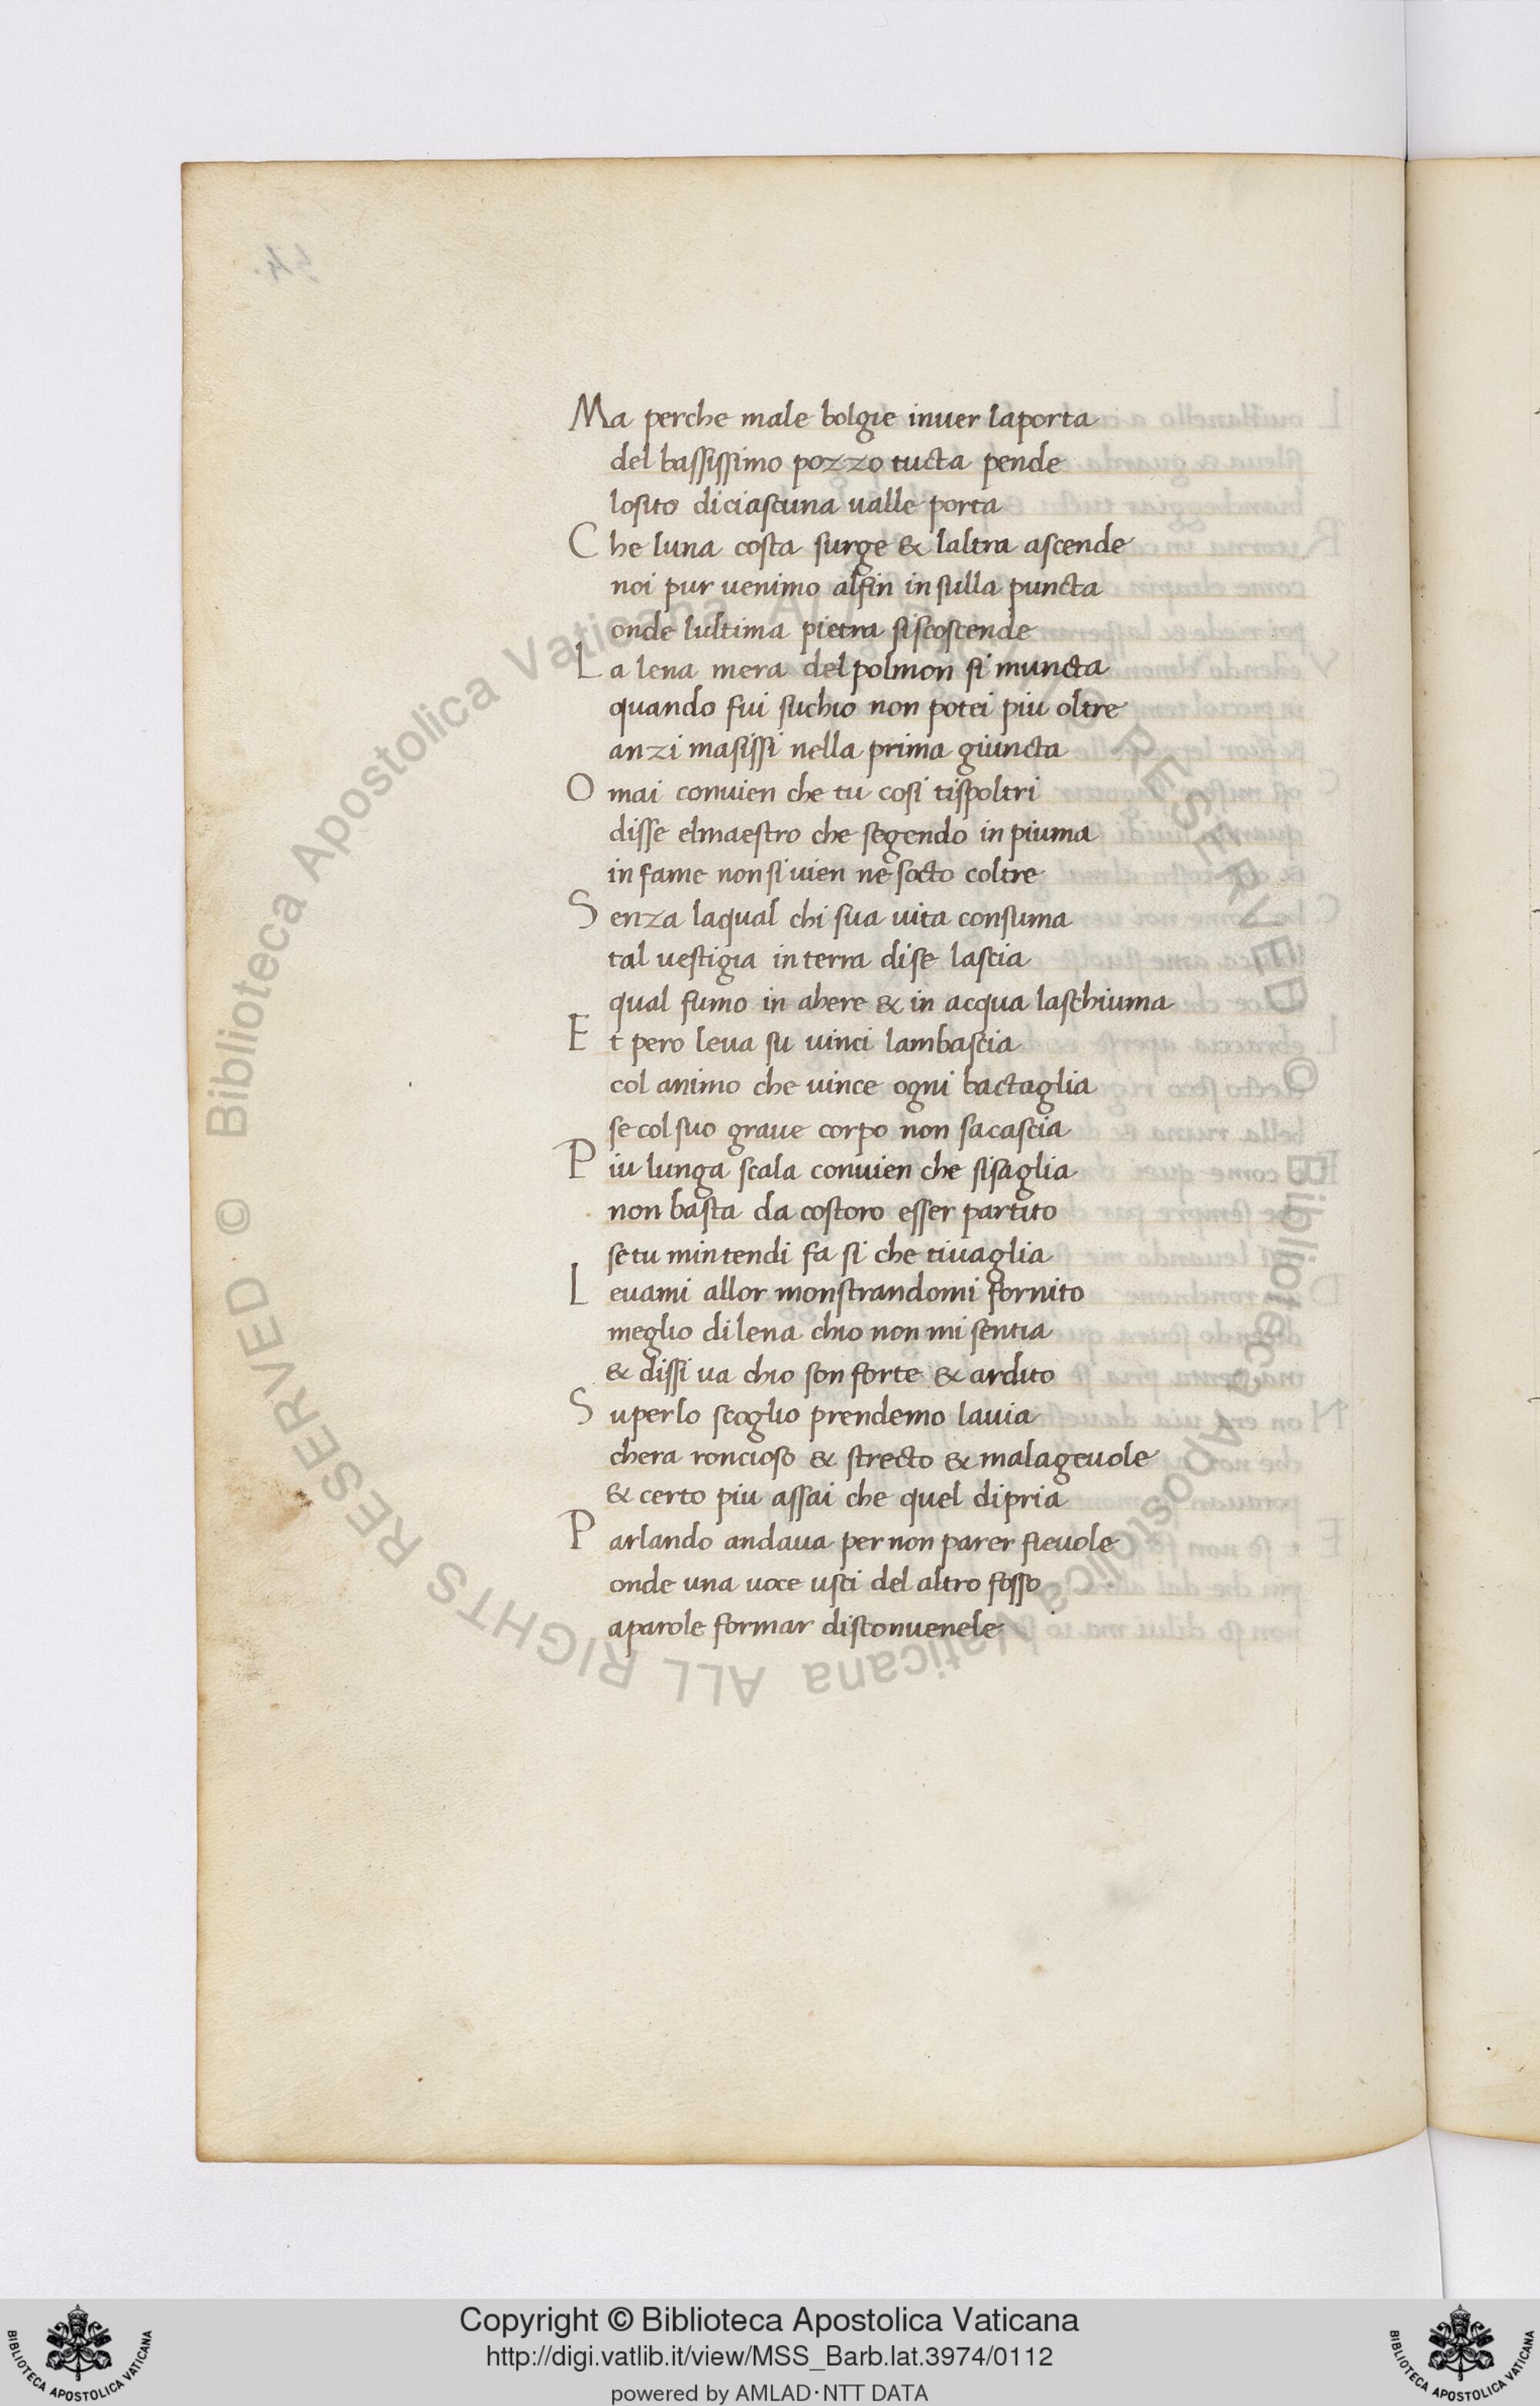 Ma perche male bolgie inuer laporta
del bassissimo pozzo tucta pende
losito diciascuna ualle porta
C he luna costa surge & laltra ascende
noi pur uenimo alfin insulla puncta
onde lultima pietra siscoscende
L a lena mera del polmon si muncta
quando fui suchio non potei piu oltre
anzi masissi nella prima giuncta
O mai conuien che tu cosi tispoltri
disse elmaestro che segendo in piuma
in fame non si uien ne socto coltre
S enza laqual chi sua uita consuma
tal uestigia in terra dise lascia
qual fumo in ahere & in acqua laschiuma
E t pero leua su uinci lambascia
col animo che uince ogni bactaglia
se col suo graue corpo non sacascia
P iu lunga scala conuien che sisaglia
non basta da costoro esser partito
setu mintendi fa si che tiuaglia
L euami allor monstrandomi fornito
meglio di lena chio non mi sentia
& dissi ua chio son forte & ardito
S uperlo scoglio prendemo lauia
chera roncioso & strecto & malageuole
& certo piu assai che quel dipria
P arlando andaua per non parer fieuole
onde una uoce usci del altro fosso
aparole formar disconuenele
© Biblioteca Apostolica Vaticana ALL RIGHTS RESERVED © Biblioteca Apostolica Vaticana ALL RIGHTS RESERVED
Copyright © Biblioteca Apostolica Vaticana
http://digi.vatlib.it/view/MSS_Barb.lat.3974/0112
powered by AMLAD·NTT DATA
BIBLIOTECA APOSTOLICA VATICANA
BIBLIOTECA APOSTOLICA VATICANA